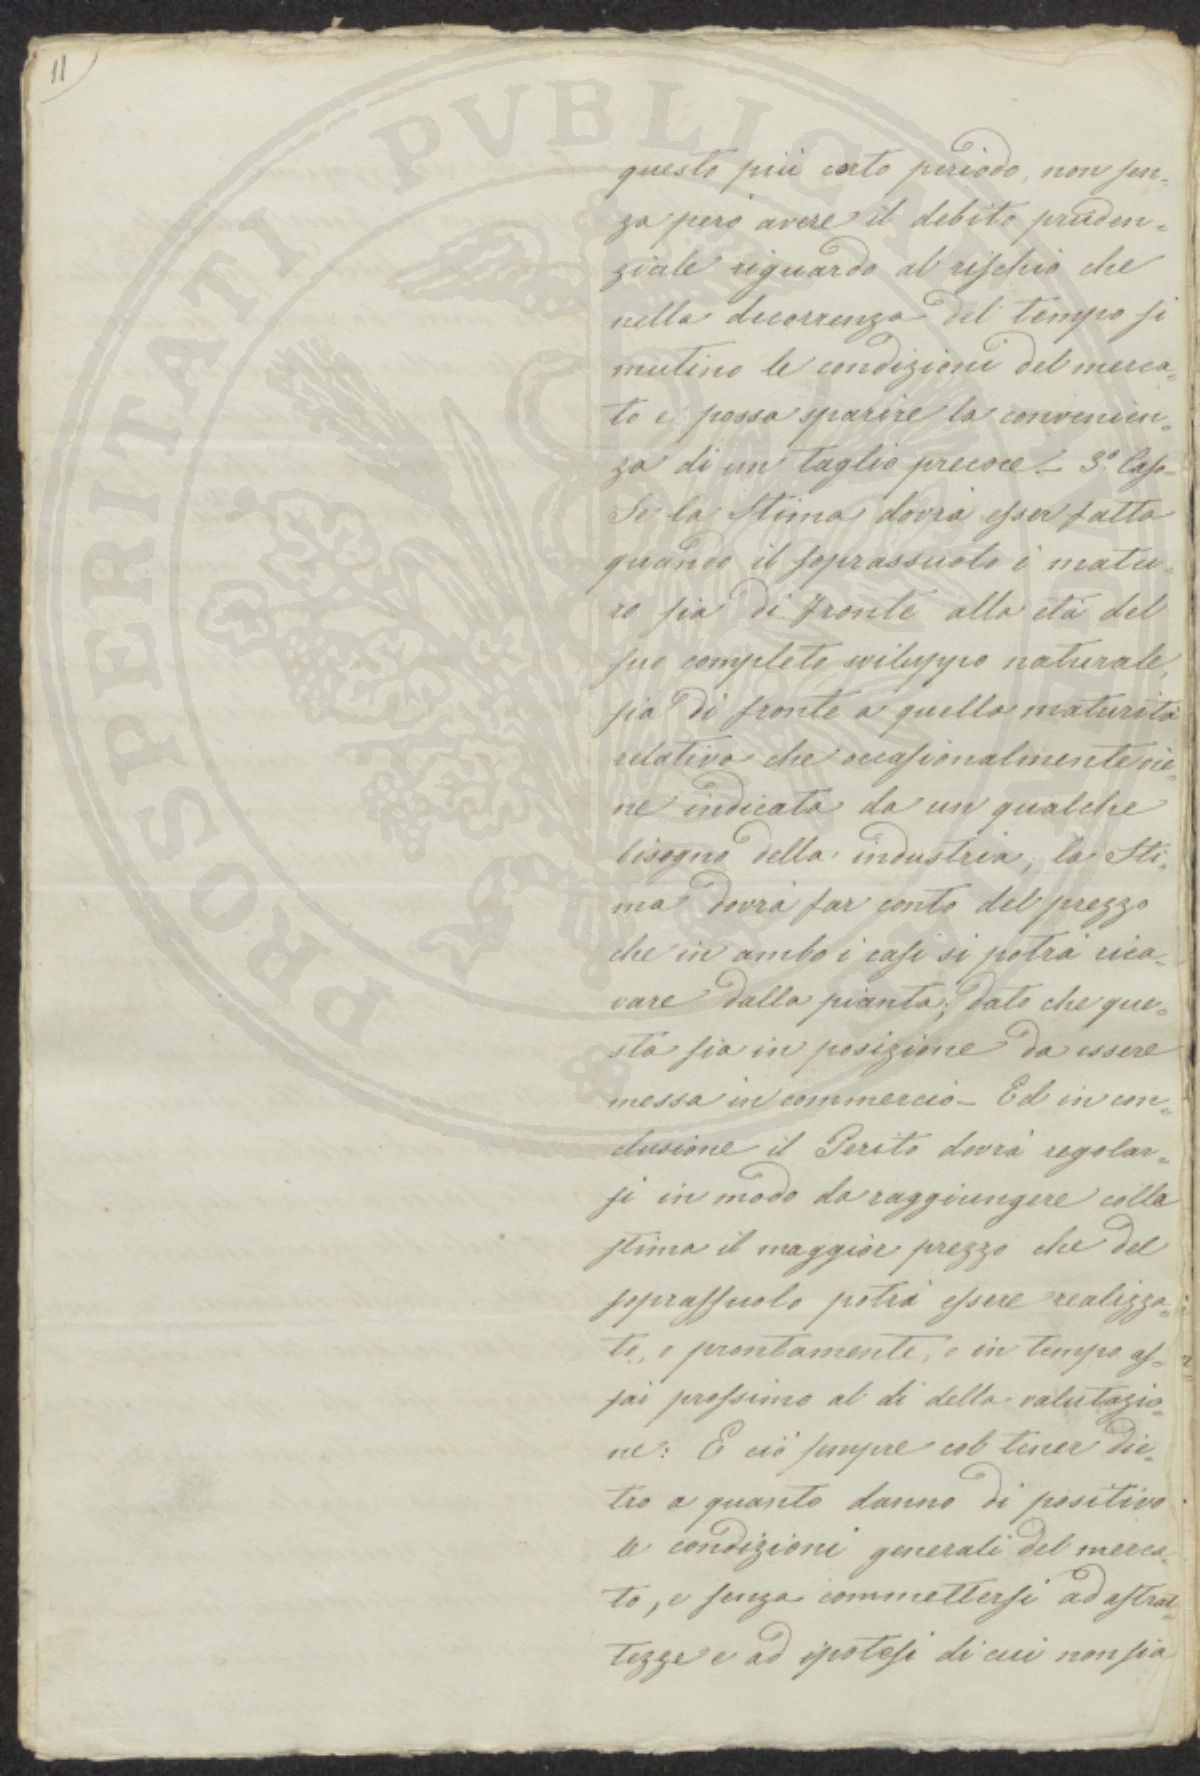 11
questo più corto periodo, non sen=
za però avere il debito pruden=
ziale riguardo al rischio che
nella decorrenza del tempo si
mutino le condizioni del merca=
to e possa sparire la convenien=
za di un taglio precoce. – 3° Caso–
Se la Stima dovrà esser fatta
quando il soprassuolo è matu=
ro sia di fronte alla età del
suo completo sviluppo naturale,
sia di fronte a quella maturità
relativa che occasionalmente vie=
ne indicata da un qualche
bisogno della industria, la Sti=
ma dovrà far conto del prezzo
che in ambo i casi si potrà rica=
vare dalla pianta, dato che que=
sta sia in posizione da essere
messa in commercio – Ed in con=
clusione il Perito dovrà regolar=
si in modo da raggiungere colla
stima il maggior prezzo che del
soprassuolo potrà essere realizza=
to, o prontamente, o in tempo as=
sai prossimo al dì della valutazio=
ne: E ciò sempre col tener die=
tro a quanto danno di positivo
le condizioni generali del merca=
to, e senza commettersi ad astrat=
tezze e ad ipotesi di cui non sia
PROSPERITATI PVBLICAE